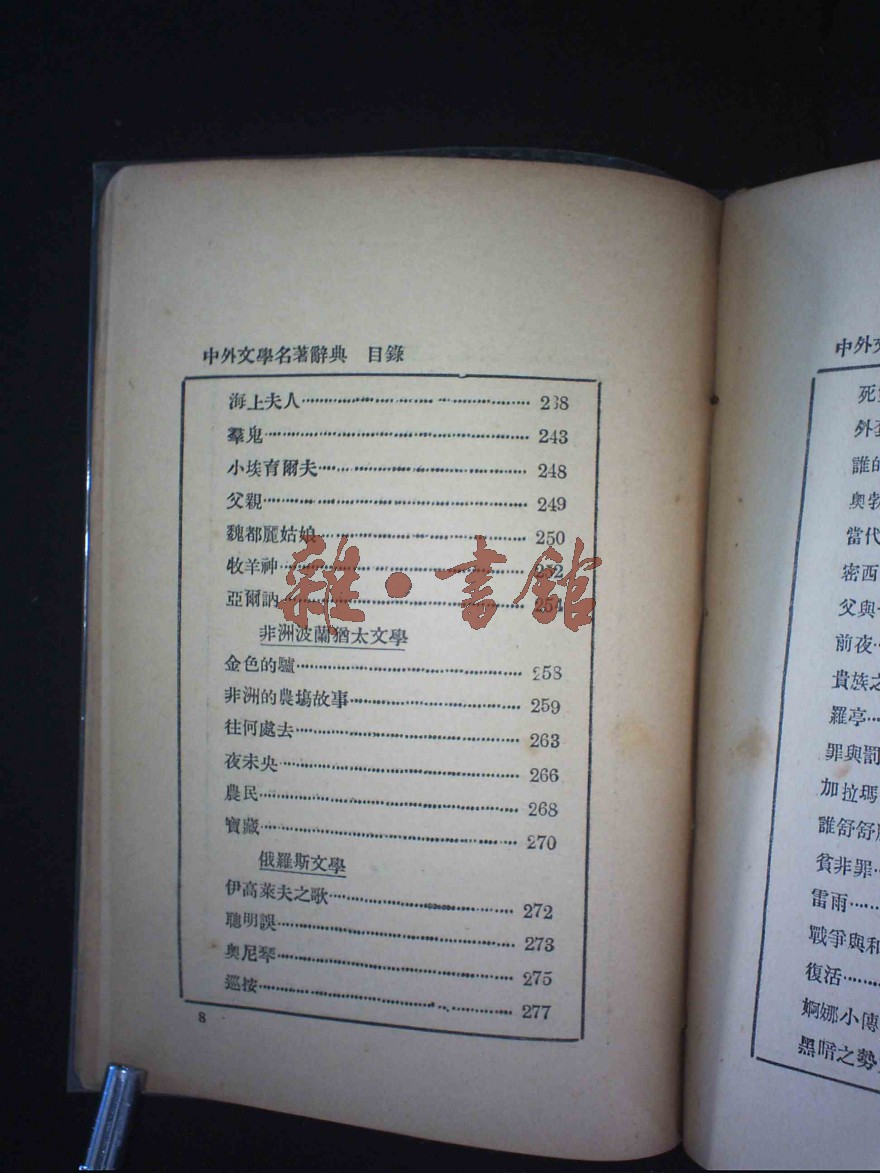 中外文學名著辭典 目錄
海上夫人 238
羣鬼 243
小埃育爾夫 248
父親 249
魏都麗姑娘 250
牧羊神 252
亞爾訥 254
非洲波蘭猶太文學
金色的驢 258
非洲的農塲故事 259
往何處去 263
夜未央 266
農民 268
寶藏 270
俄羅斯文學
伊高萊夫之歌 272
聰明誤 273
奧尼琴 275
巡按 277
8
雜·書館
中外
死
外
誰的
奧勃
當代
密西
父與
前夜
貴族之
羅亭
罪與罰
加拉瑪
誰舒舒服
貧非罪
雷雨
戰爭與和
復活
婀娜小傳
黑暗之勢